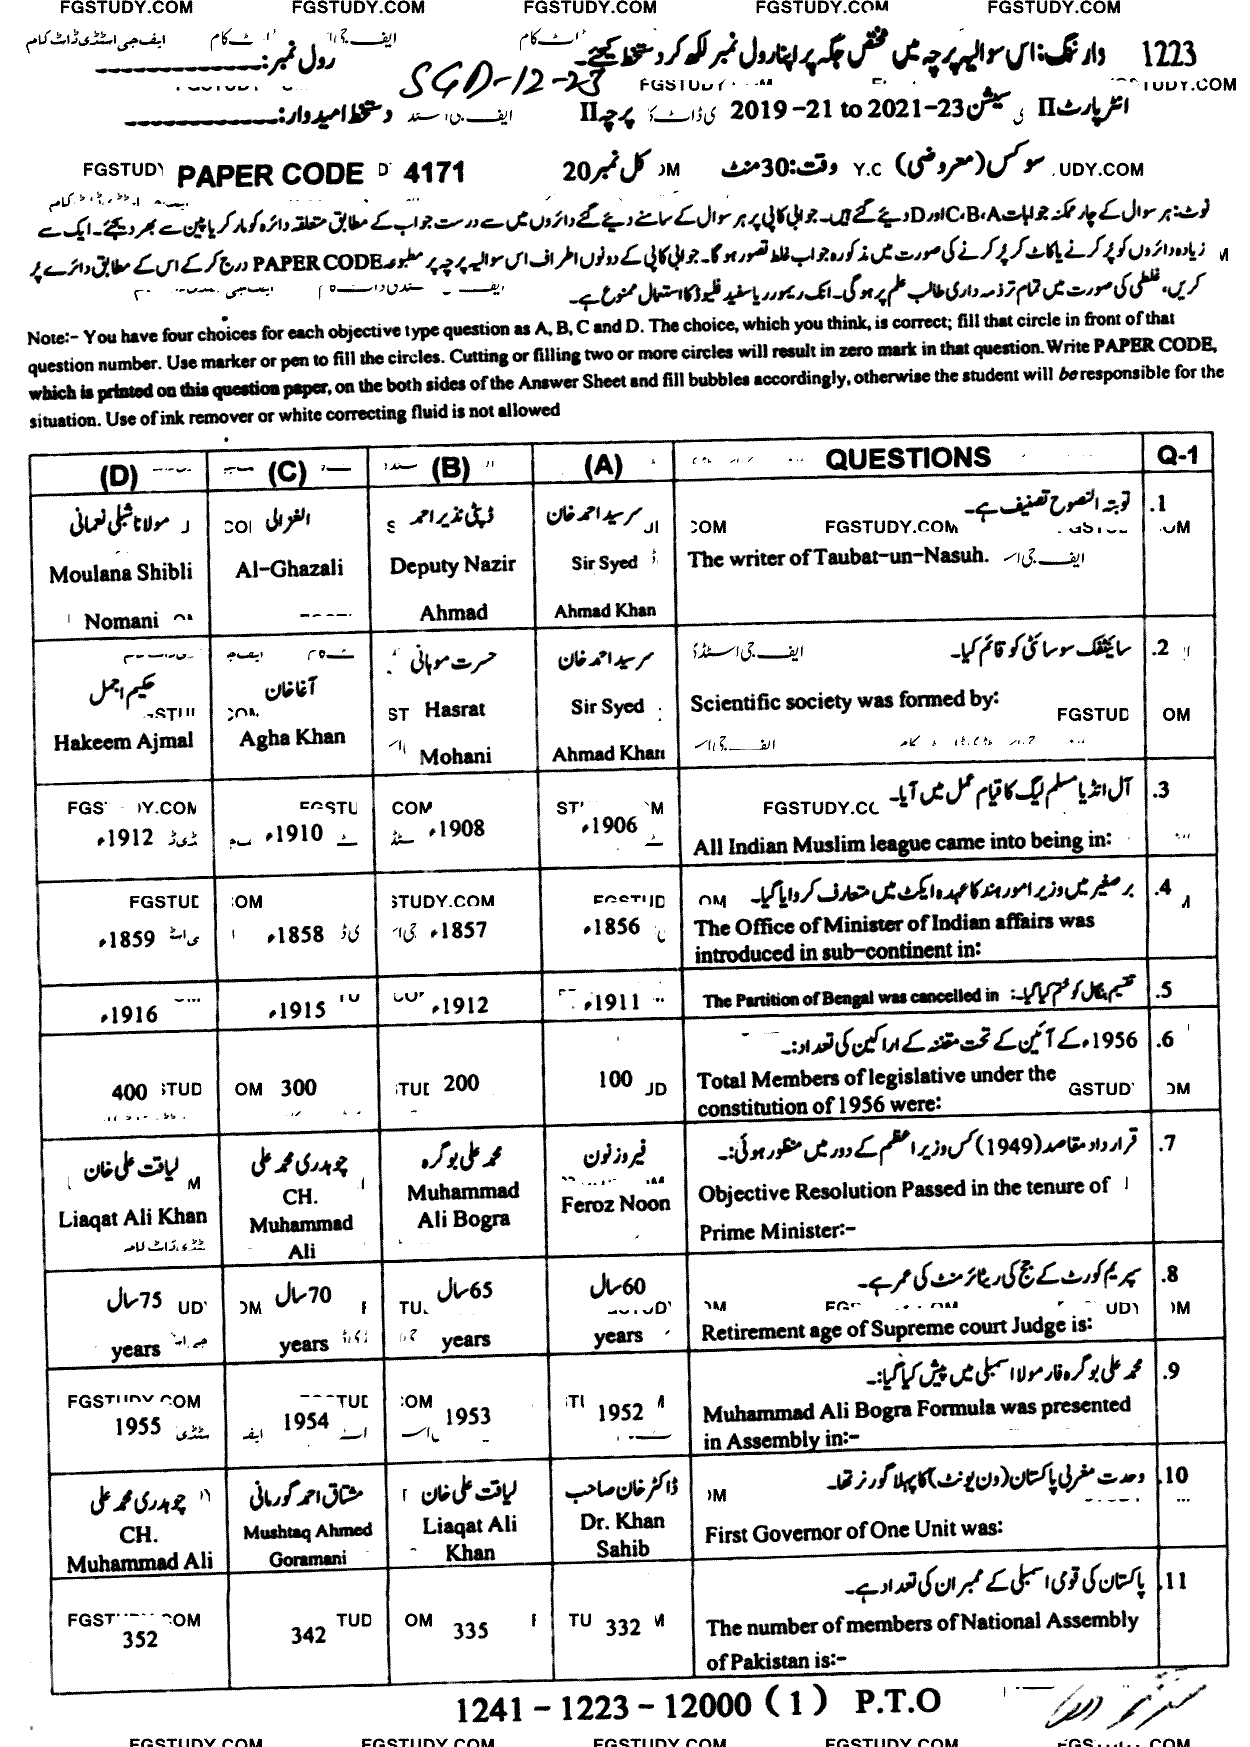 FGSTUDY.COM FGSTUDY.COM FGSTUDY.COM FGSTUDY.COM FGSTUDY.COM
1223 وارننگ: اس سوالیہ پرچہ میں مختص جگہ پر اپنا رول نمبر لکھ کر دستخط کیجئے۔ رول نمبر:
SGD-12-23
انٹر پارٹ II سیشن 2021-23 to 2019-21 پرچہ II دستخط امیدوار:
سوکس (معروضی) وقت: 30 منٹ کل نمبر 20 PAPER CODE 4171
نوٹ: ہر سوال کے چار ممکنہ جوابات A، B، C اور D دیئے گئے ہیں۔ جوابی کاپی پر ہر سوال کے سامنے دیئے گئے دائروں میں سے درست جواب کے مطابق متعلقہ دائرہ کو مارکر یا پین سے بھر دیجئے۔ ایک سے
زیادہ دائروں کو پُر کرنے یا کاٹ کر پُر کرنے کی صورت میں مذکورہ جواب غلط تصور ہوگا۔ جوابی کاپی کے دونوں اطراف اس سوالیہ پرچہ پر مطبوعہ PAPER CODE درج کر کے اس کے مطابق دائرے پُر
کریں، غلطی کی صورت میں تمام تر ذمہ داری طالب علم پر ہوگی۔ انک ریموور یا سفید فلیوڈ کا استعمال ممنوع ہے۔
Note:- You have four choices for each objective type question as A, B, C and D. The choice, which you think, is correct; fill that circle in front of that
question number. Use marker or pen to fill the circles. Cutting or filling two or more circles will result in zero mark in that question. Write PAPER CODE,
which is printed on this question paper, on the both sides of the Answer Sheet and fill bubbles accordingly, otherwise the student will be responsible for the
situation. Use of ink remover or white correcting fluid is not allowed
(D) (C) (B) (A) QUESTIONS Q-1
مولانا شبلی نعمانی الغزالی ڈپٹی نذیر احمد سر سید احمد خان توبتہ النصوح تصنیف ہے۔ .1
Moulana Shibli Al-Ghazali Deputy Nazir Sir Syed The writer of Taubat-un-Nasuh.
Nomani Ahmad Ahmad Khan
حکیم اجمل آغا خان حسرت موہانی سر سید احمد خان سائینٹفک سوسائٹی کو قائم کیا۔ .2
Hakeem Ajmal Agha Khan Hasrat Sir Syed Scientific society was formed by:
Mohani Ahmad Khan
آل انڈیا مسلم لیگ کا قیام عمل میں آیا۔ .3
1912ء 1910ء 1908ء 1906ء All Indian Muslim league came into being in:
برصغیر میں وزیر امور ہند کا عہدہ ایکٹ میں متعارف کروایا گیا۔ .4
1859ء 1858ء 1857ء 1856ء The Office of Minister of Indian affairs was
introduced in sub-continent in:
1916ء 1915ء 1912ء 1911ء The Partition of Bengal was cancelled in تقسیم بنگال کو ختم کیا گیا: .5
1956ء کے آئین کے تحت مقننہ کے اراکین کی تعداد:۔ .6
400 300 200 100 Total Members of legislative under the
constitution of 1956 were:
لیاقت علی خان چوہدری محمد علی محمد علی بوگرہ فیروز نون قرارداد مقاصد (1949) کس وزیر اعظم کے دور میں منظور ہوئی:۔ .7
Liaqat Ali Khan CH. Muhammad Ali Muhammad Ali Bogra Feroz Noon Objective Resolution Passed in the tenure of
Prime Minister:-
75 سال 70 سال 65 سال 60 سال سپریم کورٹ کے جج کی ریٹائرمنٹ کی عمر ہے۔ .8
years years years years Retirement age of Supreme court Judge is:
محمد علی بوگرہ فارمولا اسمبلی میں پیش کیا گیا:۔ .9
1955 1954 1953 1952 Muhammad Ali Bogra Formula was presented
in Assembly in:-
چوہدری محمد علی مشتاق احمد گورمانی لیاقت علی خان ڈاکٹر خان صاحب وحدت مغربی پاکستان (ون یونٹ) کا پہلا گورنر تھا۔ .10
CH. Muhammad Ali Mushtaq Ahmed Goramani Liaqat Ali Khan Dr. Khan Sahib First Governor of One Unit was:
پاکستان کی قومی اسمبلی کے ممبران کی تعداد ہے۔ .11
352 342 335 332 The number of members of National Assembly
of Pakistan is:-
1241 – 1223 – 12000 (1) P.T.O
FGSTUDY.COM FGSTUDY.COM FGSTUDY.COM FGSTUDY.COM